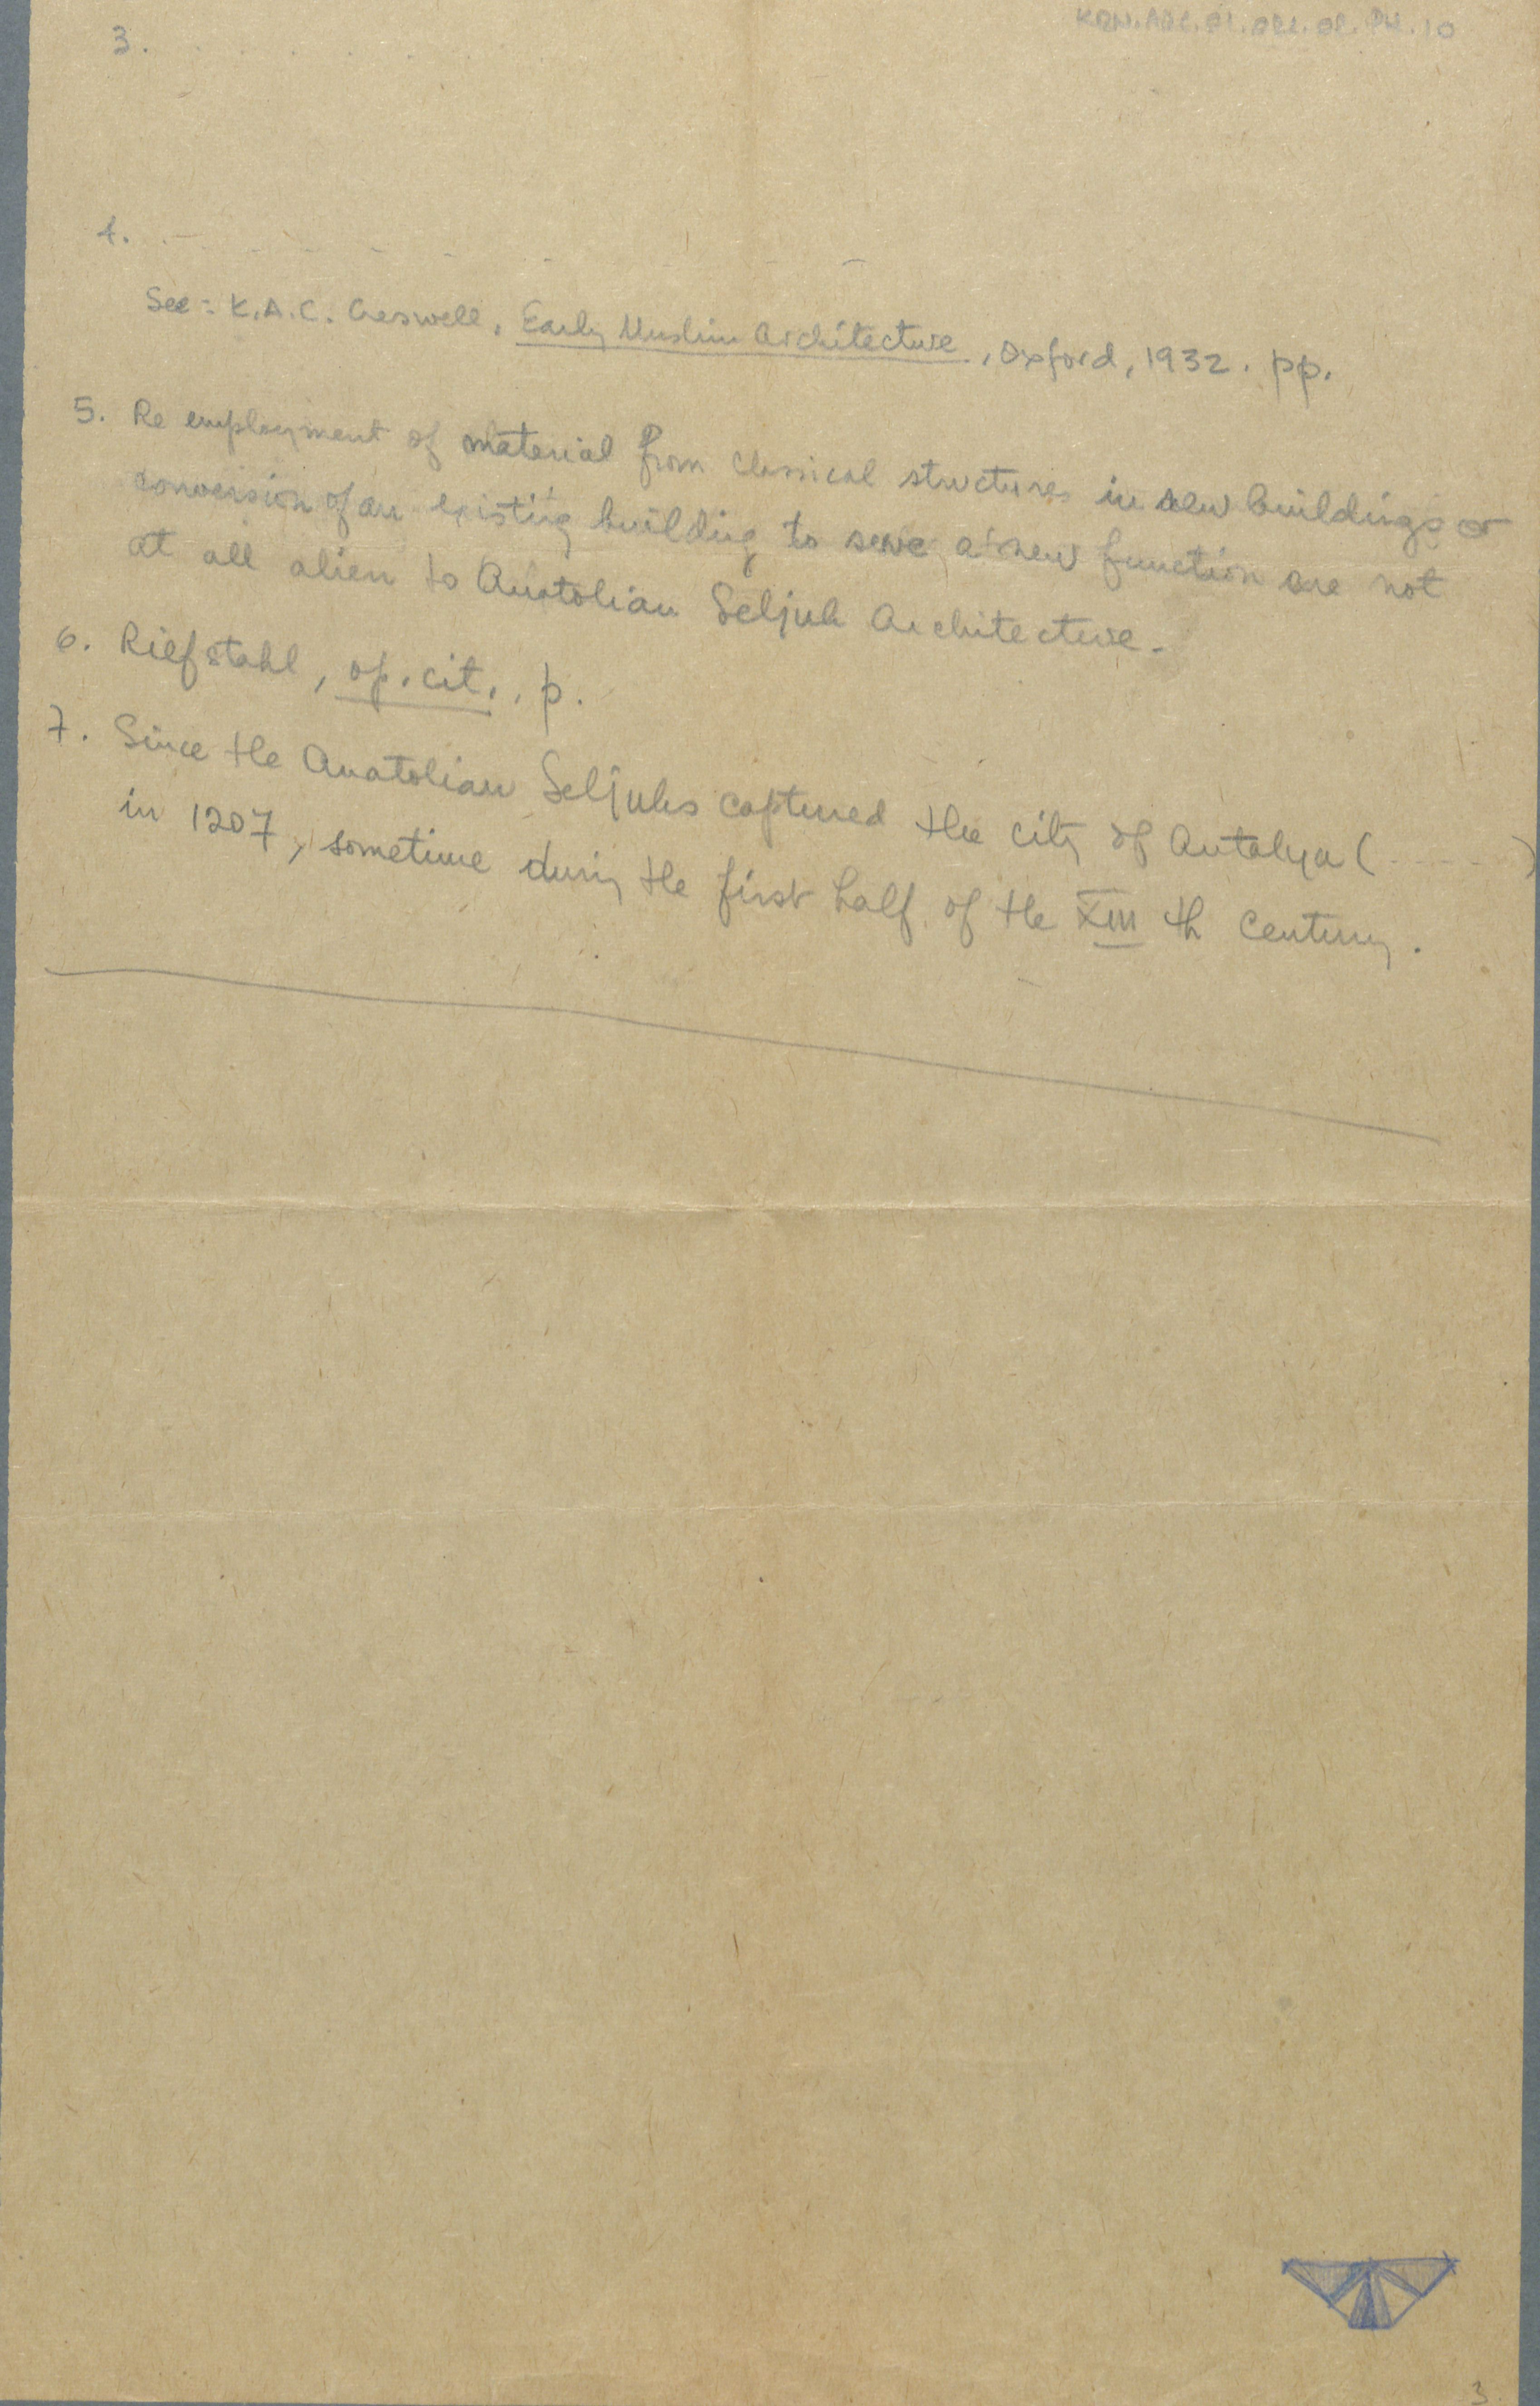 3. . . . . . . . .
4. . - - - - - - - -
See: K.A.C. Creswell, Early Muslim Architecture, Oxford, 1932. pp.
5. Re employment of material from classical structures in new buildings or
conversion of an existing building to serve a new function are not
at all alien to Anatolian Seljuk Architecture.
6. Riefstahl, op. cit., p.
7. Since the Anatolian Seljuks captured the city of Antalya ( - - - - - )
in 1207, sometime during the first half of the XIII th century.
3